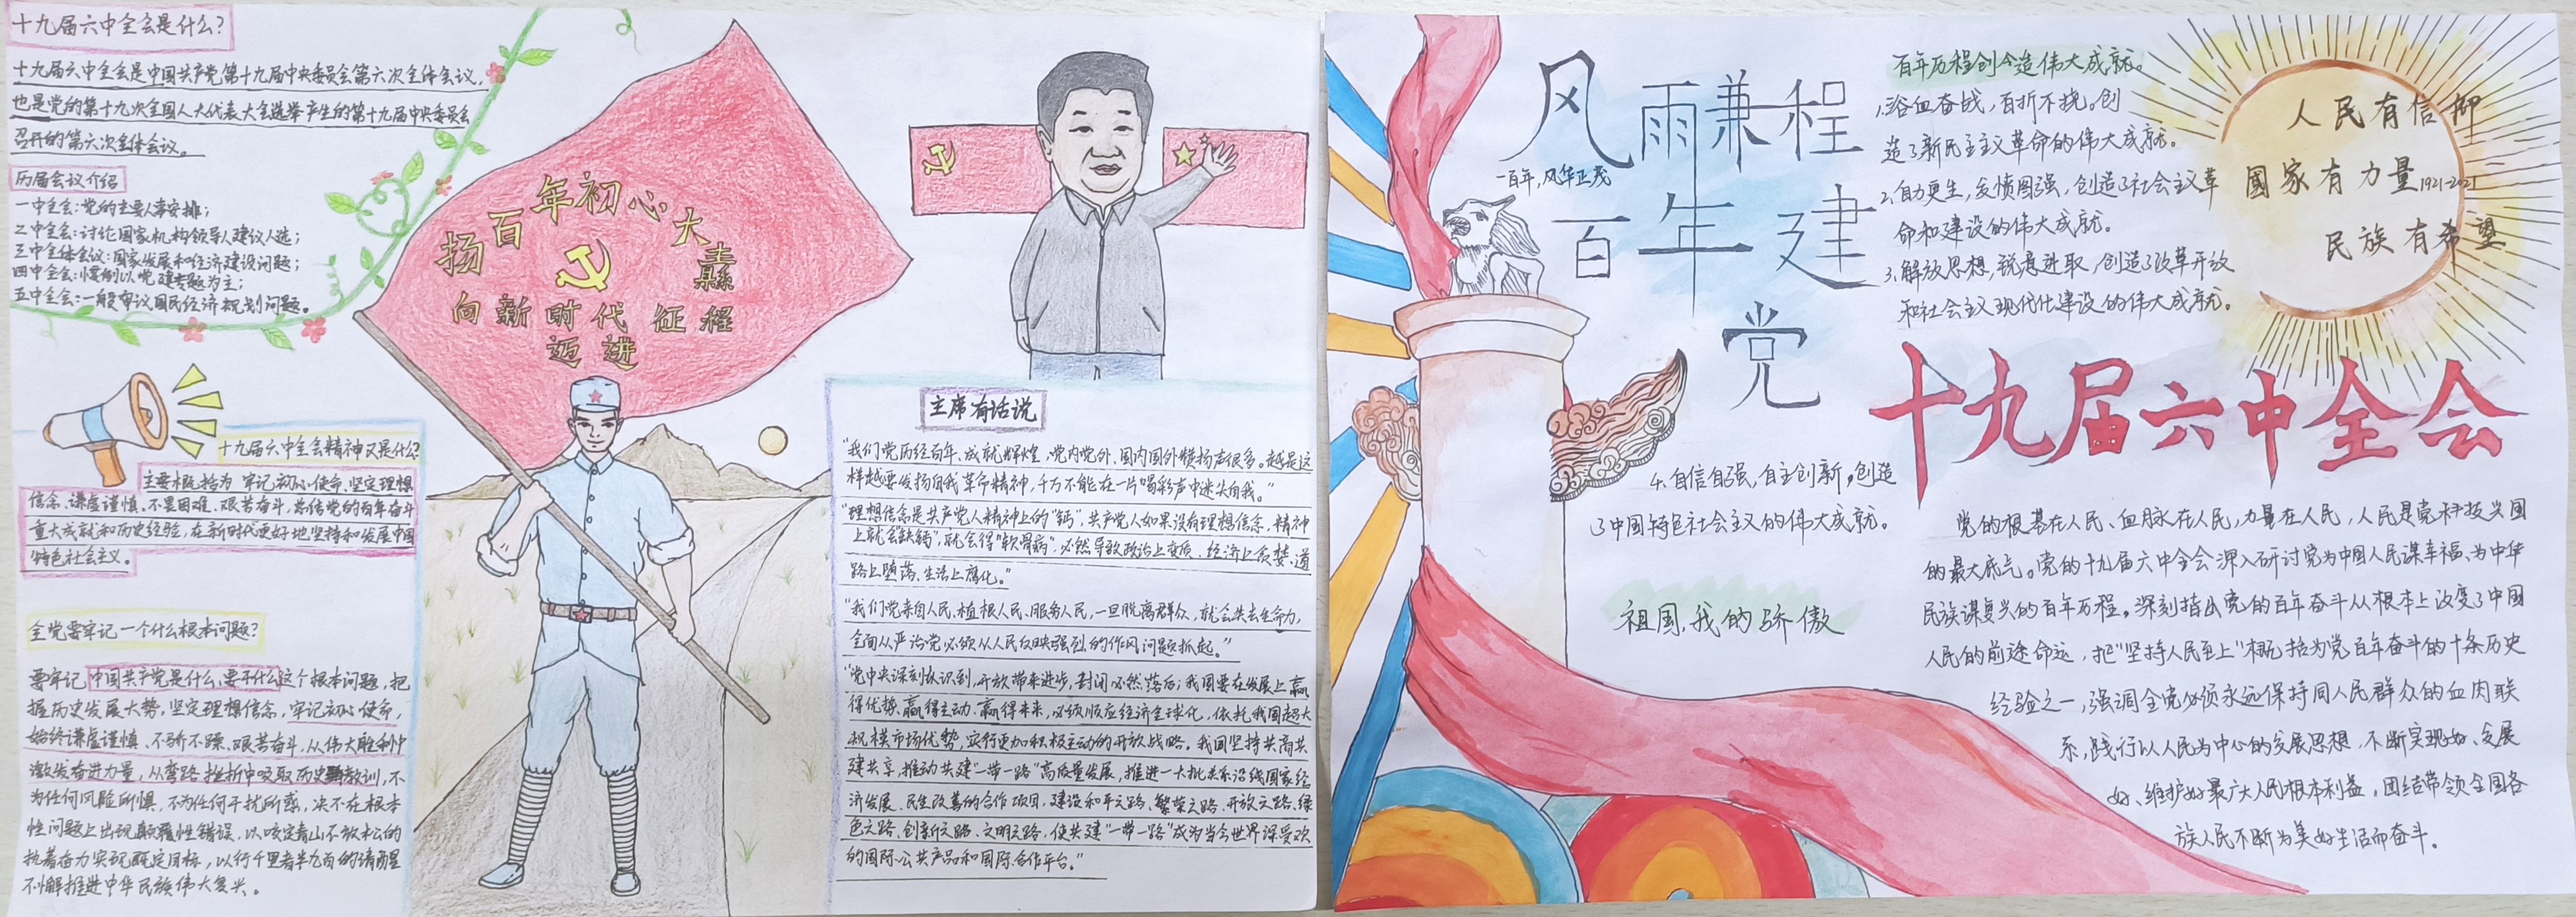 十九届六中全会是什么？
十九届六中全会是中国共产党第十九届中央委员会第六次全体会议，
也是党的第十九次全国人大代表大会选举产生的第十九届中央委员会
召开的第六次全体会议。
历届会议介绍
一中全会：党的主要人事安排；
二中全会：讨论国家机构领导人建议人选；
三中全体会议：国家发展和经济建设问题；
四中全会：惯例以党建专题为主；
五中全会：一般审议国民经济规划问题。
扬百年初心大纛
向新时代征程
迈进
十九届六中全会精神又是什么？
主要概括为 牢记初心使命、坚定理想
信念、谦虚谨慎、不畏困难、艰苦奋斗，总结党的百年奋斗
重大成就和历史经验，在新时代更好地坚持和发展中国
特色社会主义。
全党要牢记一个什么根本问题？
要牢记中国共产党是什么、要干什么这个根本问题，把
握历史发展大势，坚定理想信念，牢记初心使命，
始终谦虚谨慎、不骄不躁、艰苦奋斗，从伟大胜利中
激发奋进力量，从弯路挫折中吸取历史教训，不
为任何风险所惧，不为任何干扰所惑，决不在根本
性问题上出现颠覆性错误，以咬定青山不放松的
执着奋力实现既定目标，以行千里者半九百的清醒
不懈推进中华民族伟大复兴。
主席有话说
“我们党历经百年、成就辉煌，党内党外、国内国外赞扬声很多。越是这
样越要发扬自我革命精神，千万不能在一片喝彩声中迷失自我。”
“理想信念是共产党人精神上的“钙”，共产党人如果没有理想信念，精神
上就会“缺钙”，就会得“软骨病”，必然导致政治上变质、经济上贪婪、道
路上堕落、生活上腐化。”
“我们党来自人民、植根人民、服务人民，一旦脱离群众，就会失去生命力，
全面从严治党必须从人民反映强烈的作风问题抓起。”
“党中央深刻认识到，开放带来进步，封闭必然落后；我国要在发展上赢
得优势、赢得主动、赢得未来，必须顺应经济全球化，依托我国超大
规模市场优势，实行更加积极主动的开放战略。我国坚持共商共
建共享，推动共建“一带一路”高质量发展，推进一大批关系沿线国家经
济发展、民生改善的合作项目，建设和平之路、繁荣之路、开放之路、绿
色之路、创新之路、文明之路，使共建“一带一路”成为当今世界深受欢
的国际公共产品和国际合作平台。”
风雨兼程
一百年，风华正茂
百年建
党
百年历程创造伟大成就。
1.浴血奋战，百折不挠。创
造了新民主主义革命的伟大成就。
2.自力更生，发愤图强，创造了社会主义革
命和建设的伟大成就。
3.解放思想，锐意进取，创造了改革开放
和社会主义现代化建设的伟大成就。
人民有信仰
國家有力量1921-2021
民族有希望
十九届六中全会
4.自信自强，自主创新，创造
了中国特色社会主义的伟大成就。
祖国，我的骄傲
党的根基在人民、血脉在人民，力量在人民，人民是党和执兴国
的最大底气。党的十九届六中全会深入研讨党为中国人民谋幸福、为中华
民族谋复兴的百年历程。深刻指出党的百年奋斗从根本上改变了中国
人民的前途命运，把“坚持人民至上”概括为党百年奋斗的十条历史
经验之一，强调全党必须永远保持同人民群众的血肉联
系，践行以人民为中心的发展思想，不断实现好、发展
好、维护好最广大人民根本利益，团结带领全国各
族人民不断为美好生活而奋斗。